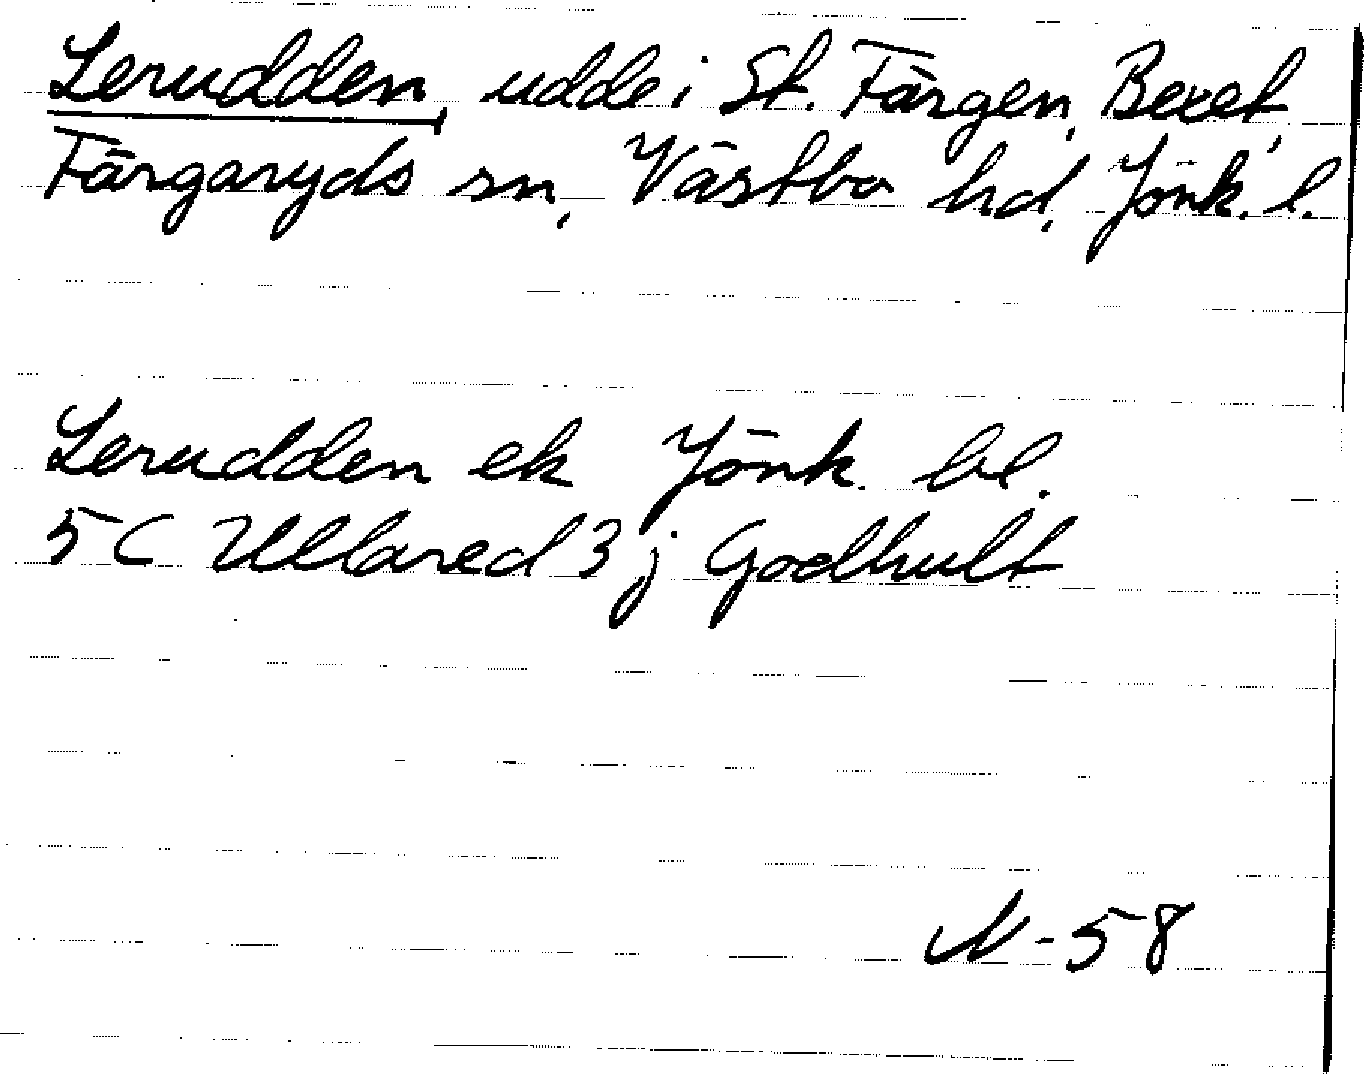 Lerudden, udde i St. Färgen, Bexet,
Färgaryds sn, Västbo hd, Jönk. l.
Lerudden ek Jönk. bl.
5C Ullared 3 j Godhult
N-58